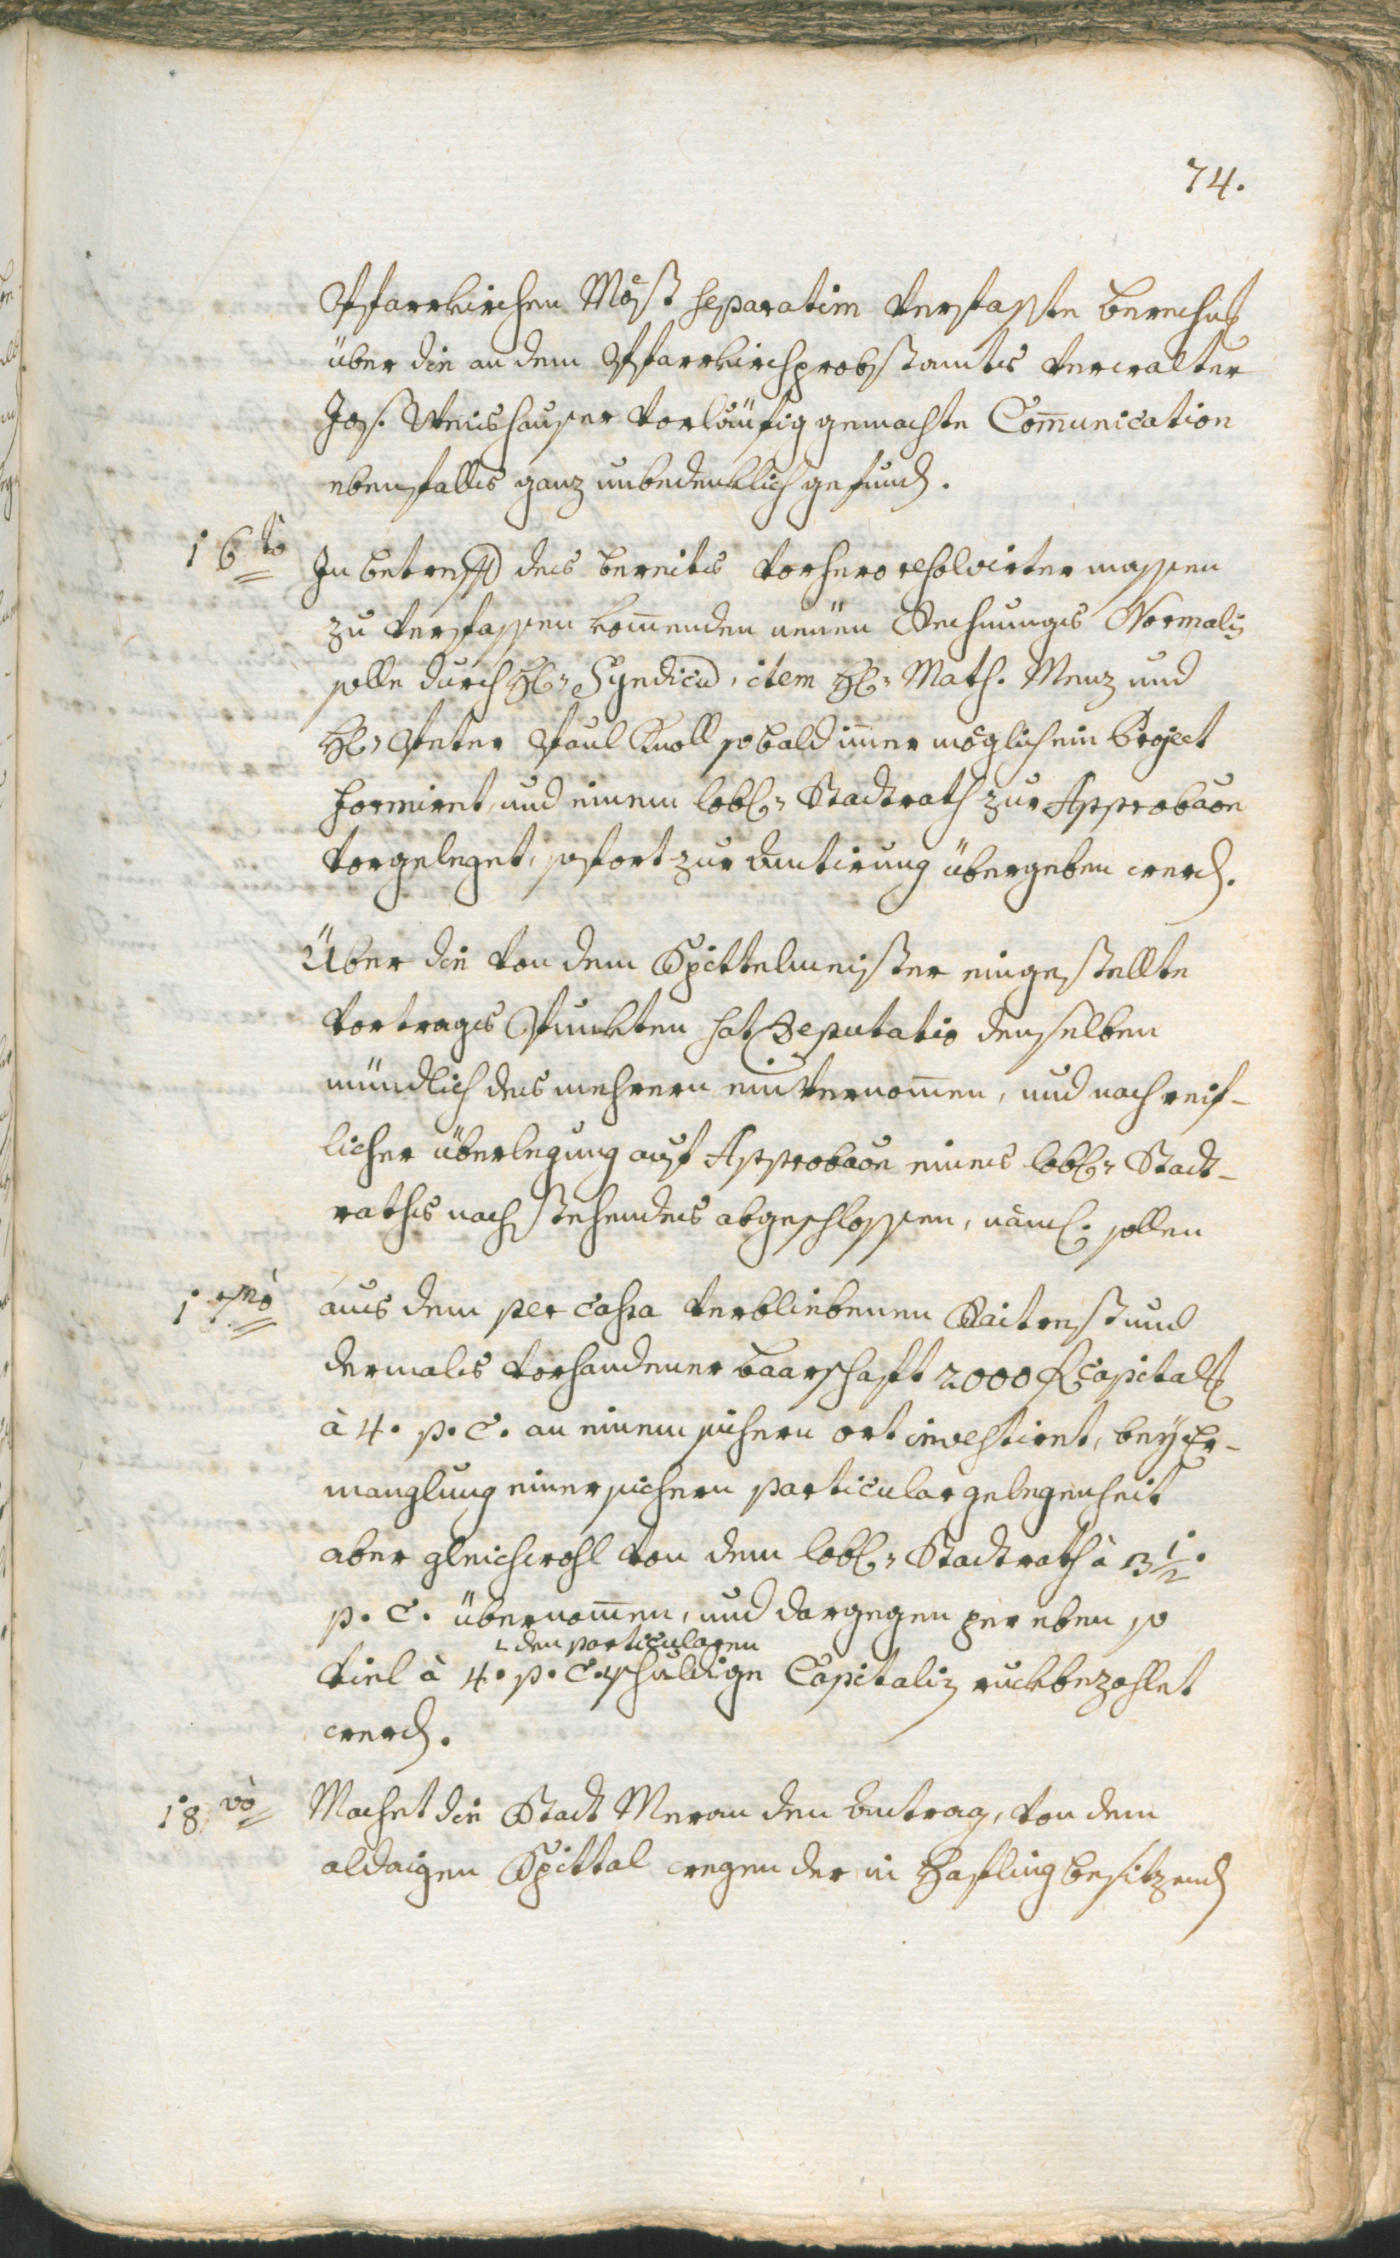 74.
Pfarrkirchen Möst separatim verfasste berechn¿
über die an dem Pfarrkirchprobstamts verwalter
Jos. Weishauser vorläufig gemachte Com̅unication
ebenfalls ganz unbedenklich gefund.
16to
In betreff des bereits vorhero resolvirter massen
zu verfassen kom̅enden neüen Rechnungs Normalis
solle durch H: Syndicu, item H: Math. Menz und
H: Peter Paul Knoll so bald im̅er möglich ein Project
formiret, und einem löbl: Stadtrath zur Approbaōn
vorgeleget, sofort zur Amtirung übergeben werd.
Über die von dem Spittelmeister eingestellte
vortrags Punkten hat Deputatio denselben
mündlich des mehrern ein vernom̅en, und nach reif-
licher überlegung auf Approbaōn eines löbl: Stadt-
raths nach stehendes abgeschlossen, näml. sollen
17mò
aus dem per cassa verbliebenen Raitrest und
dermals vorhandener baarschaft 2000 f Capitals
à 4. p. C. an einem sichern ort investiret, bey Er-
manglung einer sichern particular gelegenheit
aber gleichwohl von dem löbl: Stadtrath à 3 1/2.
p. C. übernom̅en, und dargegen per eben so
den particularen
viel à 4. p. C. schuldige Capitalis ruckbezahlet
werd.
18vò
Machet die Stadt Meran den Antrag, von dem
aldaigen Spittal wegen der in Hafling besitzend